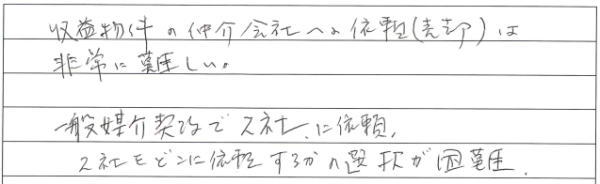 収益物件の仲介会社への依頼(売却)は
非常に難しい。
一般媒介契約で2社に依頼、
2社をどこに依頼するかの選択が困難.